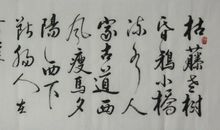 枯藤老树
昏鸦小桥
流水人
家古道西
风瘦马夕
阳西下
断肠人在